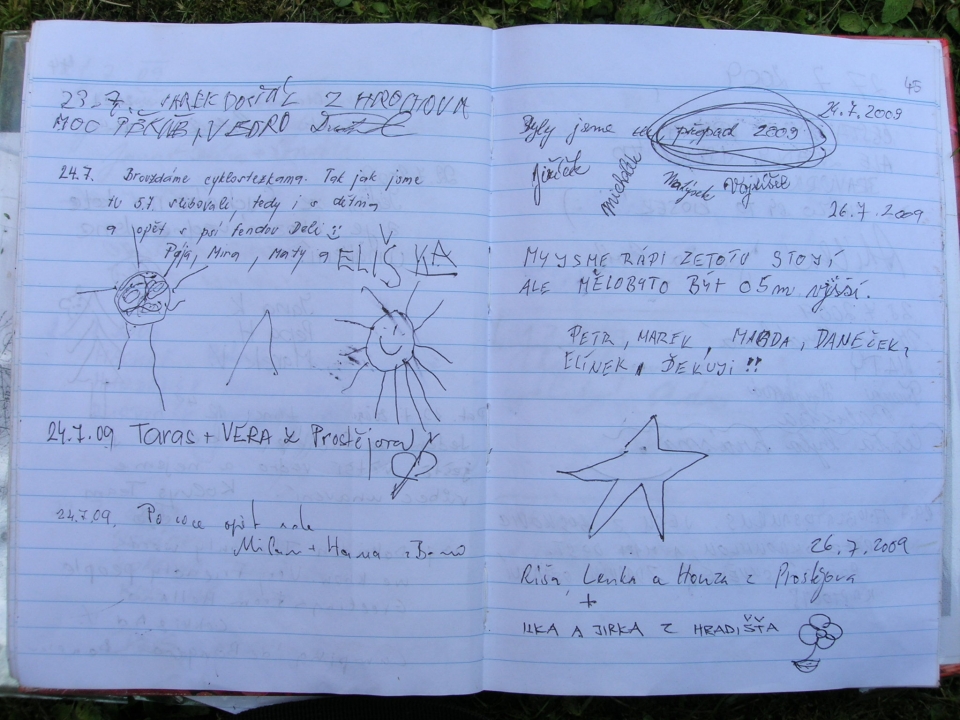 23.7. JAREK DOSTÁL Z HROCHOVA
MOC PĚKNĚ, VEDRO
24.7. Brouzdáme cyklostezkama. Tak jak jsme
tu 5.7. slibovali, tedy i s dětma
a opět s psí fendou Deli
Pája, Mira, Maty a ELIŠKA
24.7.09 Taras + VĚRA z Prostějova
24.7.09. Po roce opět zde
Milan + Hana z Brna
45
24.7.2009
Byly jsme přepad 2009
Jiříček
michalik
Matýsek Vojtíšek
26.7.2009
MY JSME RÁDI ŽE TO TU STOJÍ
ALE MĚLO BY TO BÝT O 5m vyšší.
PETR, MAREK, MAGDA, DANEČEK,
ELÍNEK, ĎEKUJI!!
26.7.2009
Ríša, Lenka a Honza z Prostějova
+
ILKA A JIRKA Z HRADIŠTA